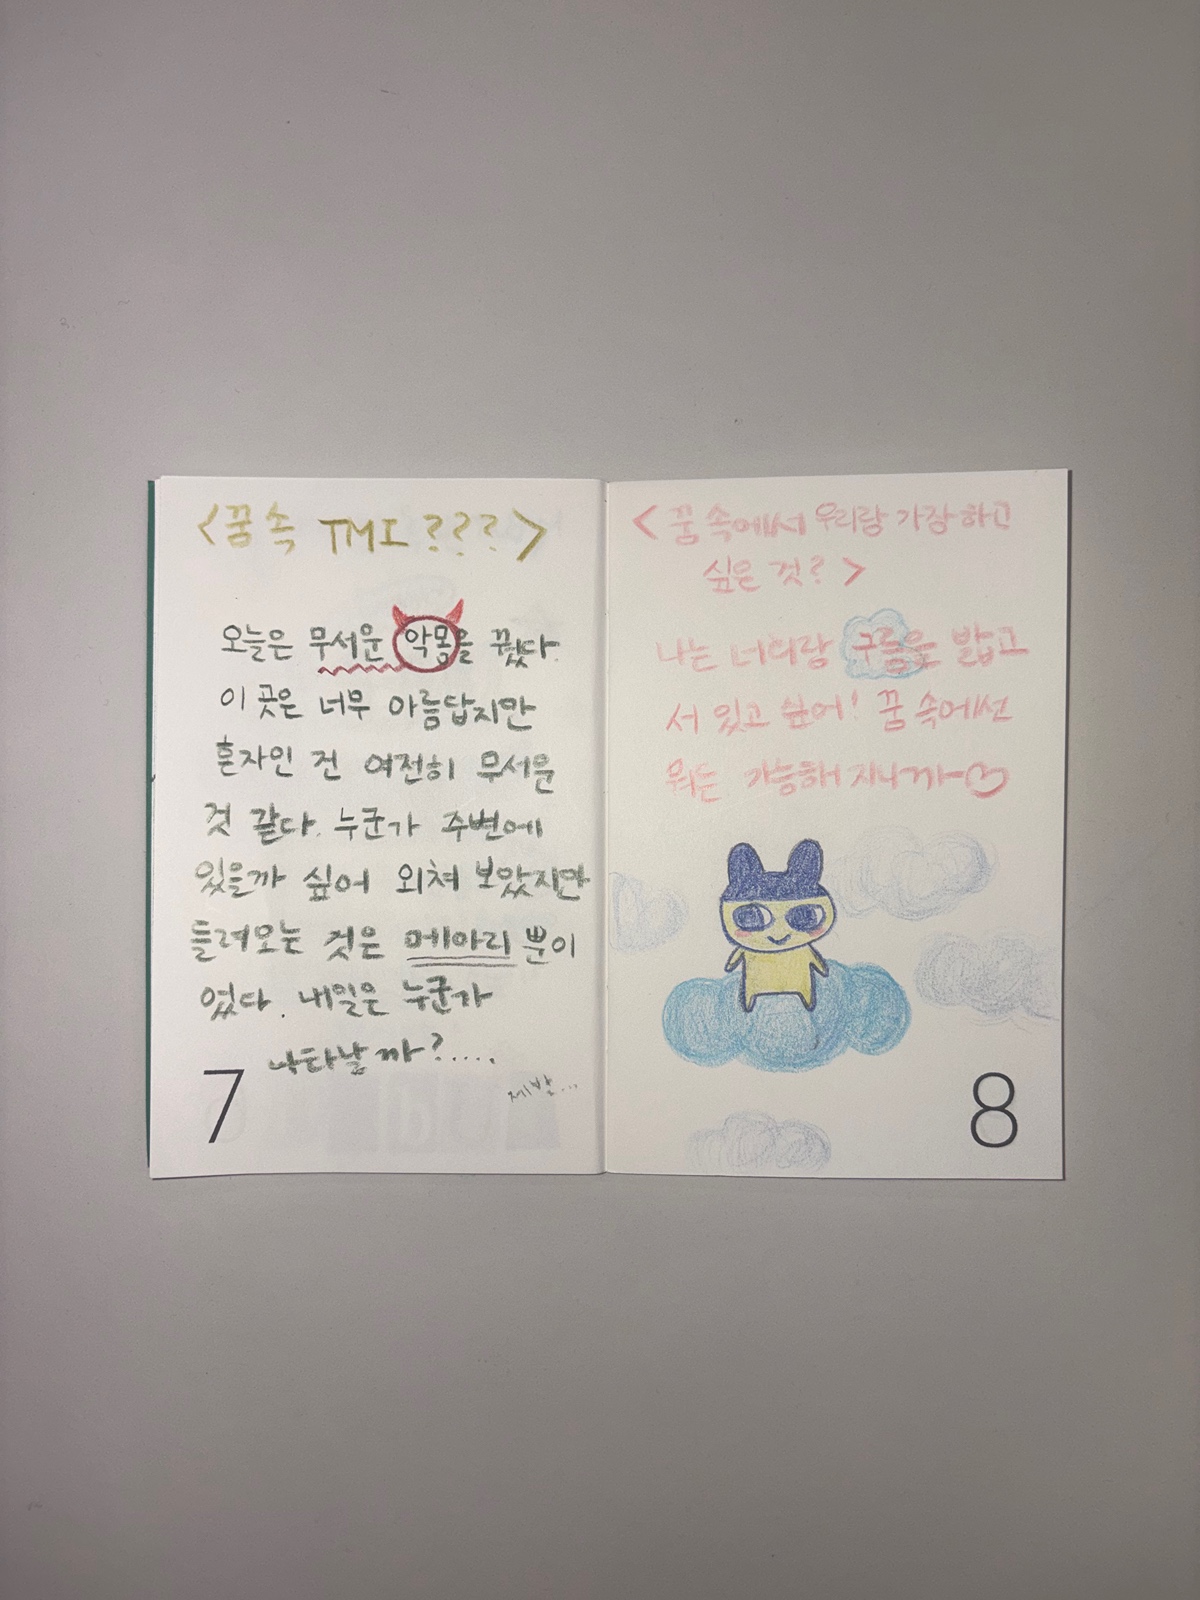 <꿈 속 TMI ???>
오늘은 무서운 악몽을 꿨다.
이 곳은 너무 아름답지만
혼자인 건 여전히 무서운
것 같다. 누군가 주변에
있을까 싶어 외쳐 보았지만
들려오는 것은 메아리 뿐이
었다. 내일은 누군가
나타날까?.....
제발...
7
<꿈 속에서 우리랑 가장 하고
싶은 것? >
나는 너희랑 구름을 밟고
서 있고 싶어! 꿈 속에선
뭐든 가능해 지니까~♡
8